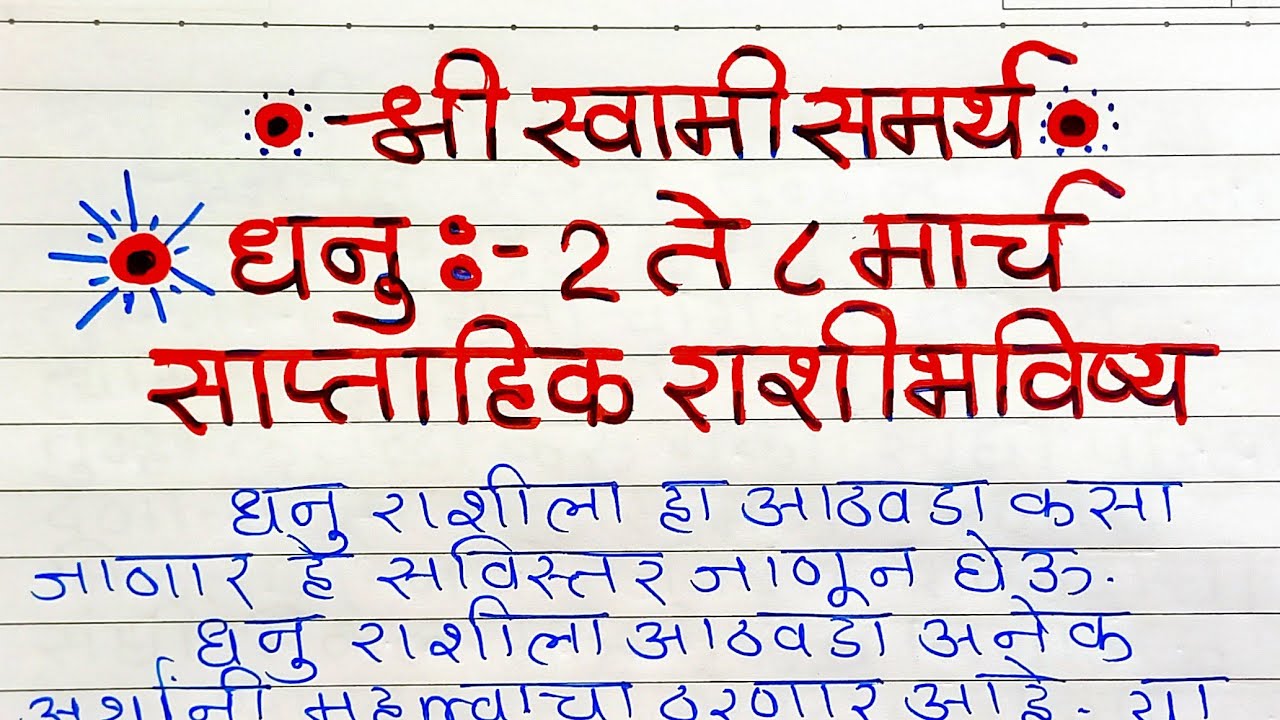 श्री स्वामी समर्थ
धनु :- 2 ते ८ मार्च
साप्ताहिक राशीभविष्य
धनु राशीला हा आठवडा कसा
जाणार हे सविस्तर जाणून घेऊ.
धनु राशीला आठवडा अनेक
अर्थांनी महत्वाचा ठरणार आहे. या